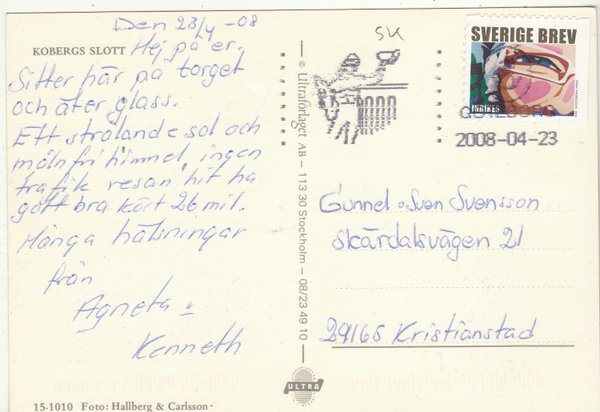 Den 23/4 -08
KOBERGS SLOTT Hej på er,
Sitter här på torget
och äter glass.
Ett strålande sol och
molnfri himmel, ingen
trafik resan hit ha
gott bra kört 26 mil.
Många hälsningar
från
Agneta o
Kenneth
15-1010 Foto: Hallberg & Carlsson
© Ultraförlaget AB – 113 30 Stockholm – 08/23 49 10
ULTRA
SK
SVERIGE BREV
INRIKES
GÖTEBORG
2008-04-23
Gunnel o Sven Svensson
Skärdalsvägen 21
29165 Kristianstad